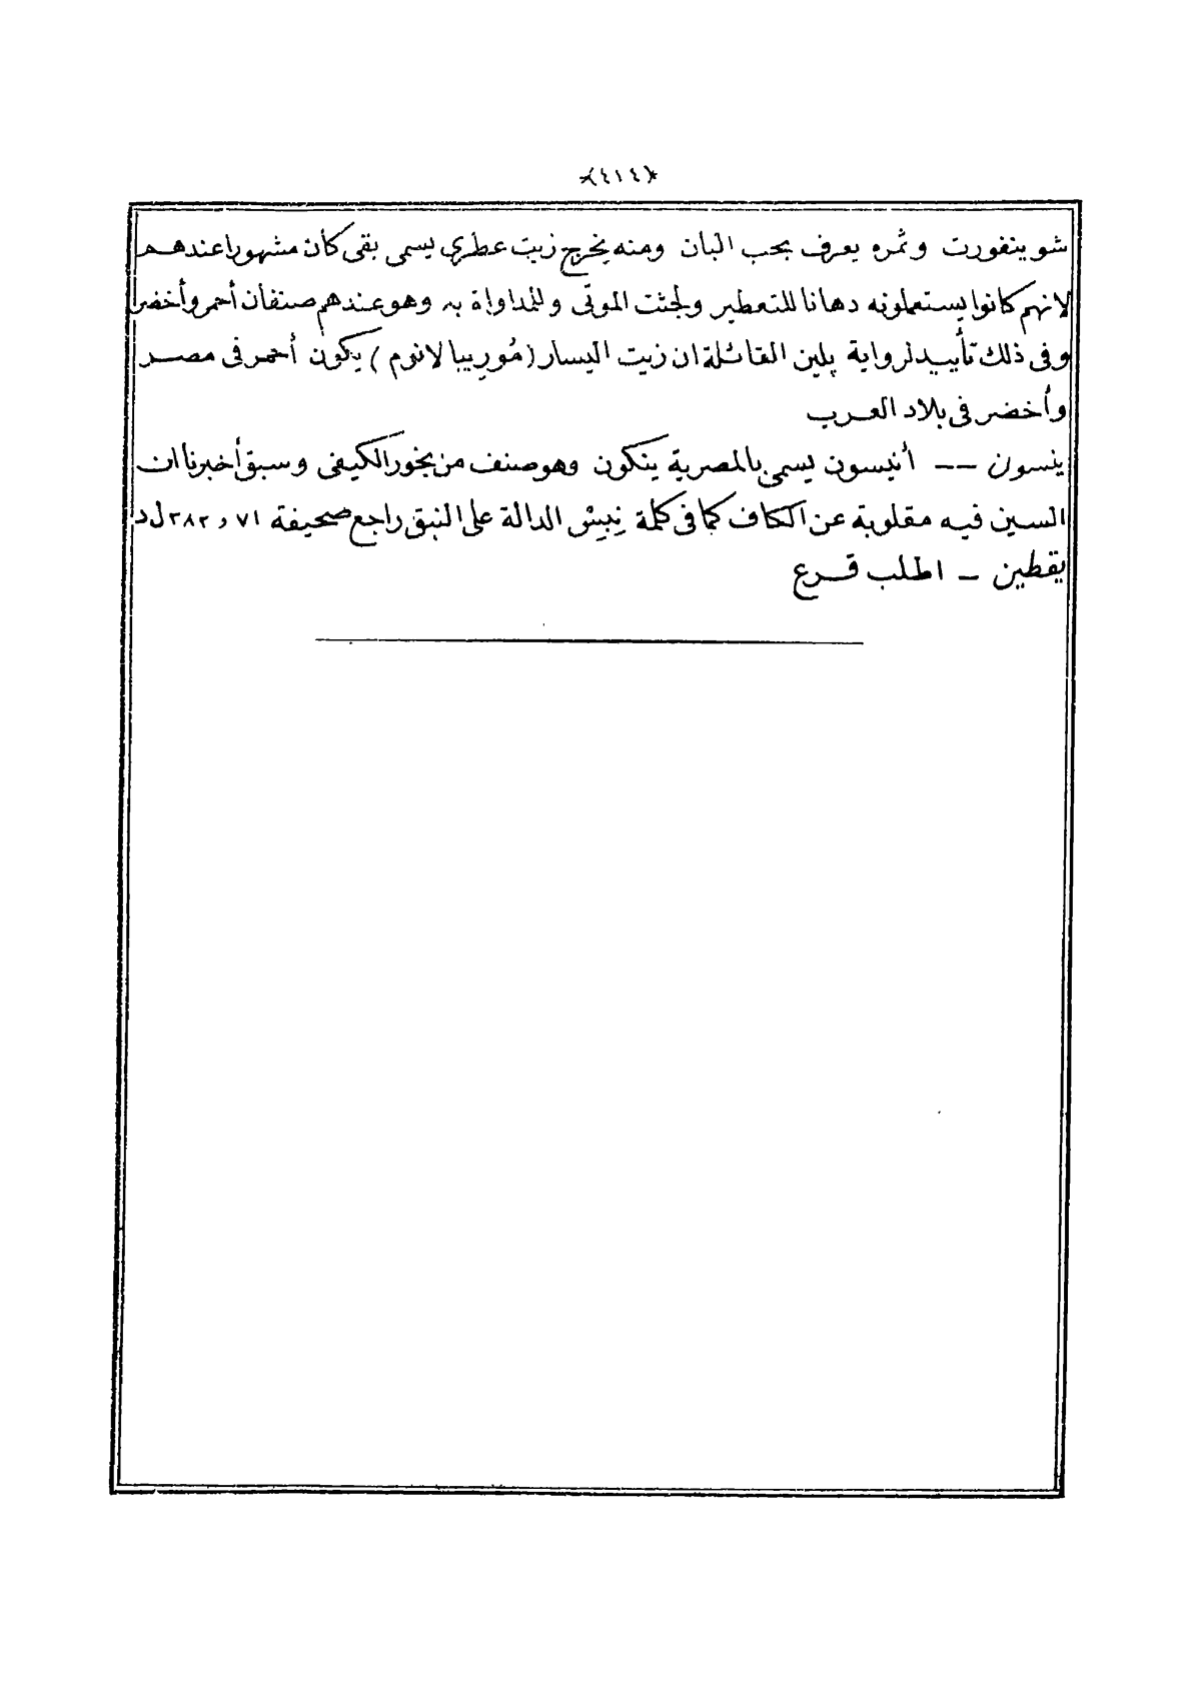 ﴿٤١٤﴾
شوينفورت وثمره يعرف بحب البان ومنه يخرج زيت عطري يسمى بقى كان مشهورا عندهم
لانهم كانوا يستعملونه دهانا للتعطير ولجثث الموتى وللمداواة به وهو عندهم صنفان أحمر وأخضر
وفى ذلك تأييد لرواية پلين القائلة ان زيت اليسار (مُورِيبا لانوم) يكون أحمر فى مصر
وأخضر فى بلاد العرب
ينسون -- أنيسون يسمى بالمصرية ينكون وهو صنف من بخور الكيفى وسبق أخبرنا ان
السين فيه مقلوبة عن الكاف كما فى كلمة نِبِسْ الدالة على النبق راجع صحيفة ٧١ و ٣٨٢ ل د
يقطين - اطلب قرع